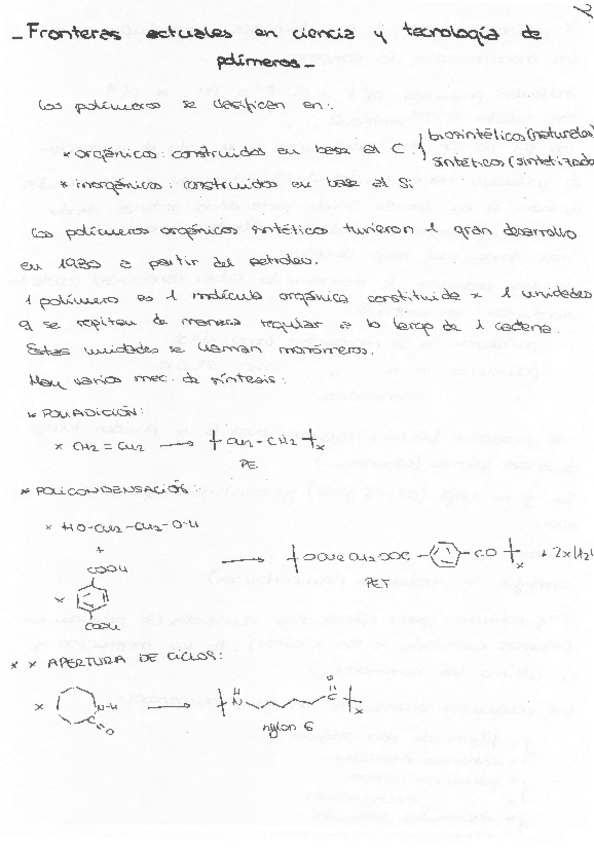 - Fronteras actuales en ciencia y tecnología de
polímeros -
Los polímeros se clasifican en:
* orgánicos: construidos en base al C. { biosintéticos (naturales)
sintéticos (sintetizado
* inorgánicos: construidos en base al Si
Los polímeros orgánicos sintético tuvieron 1 gran desarrollo
en 1930 a partir del petroleo.
1 polímero es 1 molécula orgánica constituida x 1 unidades
q se repiten de manera regular a lo largo de 1 cadena.
Estas unidades se llaman monómeros.
Hay varios mec. de síntesis:
* POLIADICIÓN:
x CH2 = CH2 → [CH2-CH2]x
PE.
* POLICONDENSACIÓN:
x HO-CH2-CH2-O-H
+
COOH
x
COOH
→ [OCH2CH2OOC- -CO]x + 2x(H2
PET
* x APERTURA DE CICLOS:
x N-H C=O → [N H C O]x
nylon 6